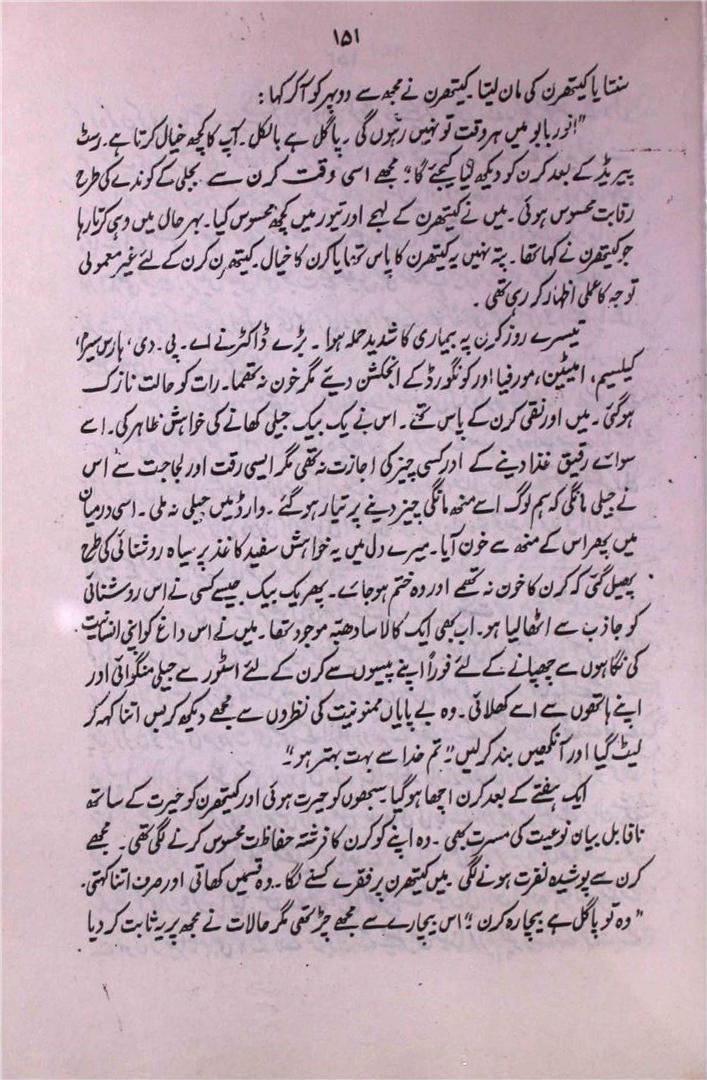 ۱۵۱
سنتا یا کیتھرن کی مان لیتا۔ کیتھرن نے مجھ سے دوپہر کو آکر کہا :
"انور بابو میں ہر وقت تو نہیں رہوں گی ۔ پاگل ہے بالکل۔ آپ کا کچھ خیال کرتا ہے۔ رسٹ
پیریڈ کے بعد کرن کو دیکھ لیا کیجئے گا" مجھے اسی وقت کرن سے بجلی کے کوندے کی طرح
رقابت محسوس ہوئی ۔ میں نے کیتھرن کے لہجے اور تیور میں کچھ محسوس کیا۔ بہر حال میں وہی کرتا رہا
جو کیتھرن نے کہا تھا ۔ پتہ نہیں یہ کیتھرن کا پاس تھا یا کرن کا خیال ۔ کیتھرن کرن کے لئے غیر معمولی
توجہ کا عملی اظہار کر رہی تھی ۔
تیسرے روز کرن پہ بیماری کا شدید حملہ ہوا ۔ بڑے ڈاکٹر نے اے ۔ پی ۔ دی، ہارس سیرم،
کیلسیم، امیٹین، مورفیا اور کونگورڈ کے انجکشن دیئے مگر خون نہ تھما۔ رات کو حالت نازک
ہوگئی ۔ میں اور نقی کرن کے پاس تھے۔ اس نے یک بیک جیلی کھانے کی خواہش ظاہر کی۔ اسے
سوائے رقیق غذا دینے کے اور کسی چیز کی اجازت نہ تھی مگر ایسی رقت اور لجاجت سے اس
نے جیلی مانگی کہ ہم لوگ اسے منھ مانگی چیز دینے پر تیار ہوگئے ۔ وارڈ میں جیلی نہ ملی ۔ اسی درمیان
میں پھر اس کے منھ سے خون آیا۔ میرے دل میں یہ خواہش سفید کاغذ پر سیاہ روشنائی کی طرح
پھیل گئی کہ کرن کا خون نہ تھمے اور وہ ختم ہوجائے۔ پھر یک بیک جیسے کسی نے اس روشنائی
کو جاذب سے اٹھا لیا ہو۔ اب بھی ایک کالا سا دھبّہ موجود تھا۔ میں نے اس داغ کو اپنی انسانیت
کی نگاہوں سے چھپانے کے لئے فوراً اپنے پیسوں سے کرن کے لئے اسٹور سے جیلی منگوائی اور
اپنے ہاتھوں سے اسے کھلائی ۔ وہ بے پایاں ممنونیت کی نظروں سے مجھے دیکھ کر بس اتنا کہہ کر
لیٹ گیا اور آنکھیں بند کرلیں "تم خدا سے بہت بہتر ہو"
ایک ہفتے کے بعد کرن اچھا ہوگیا۔ سبھوں کو حیرت ہوئی اور کیتھرن کو حیرت کے ساتھ
ناقابل بیان نوعیت کی مسرت بھی ۔ وہ اپنے کو کرن کا فرشتہ حفاظت محسوس کرنے لگی تھی ۔ مجھے
کرن سے پوشیدہ نفرت ہونے لگی ۔ میں کیتھرن پر فقرے کسنے لگا۔ وہ قسمیں کھاتی اور صرف اتنا کہتی۔
"وہ تو پاگل ہے بیچارہ کرن" اس بیچارے سے مجھے چڑ تھی مگر حالات نے مجھ پر یہ ثابت کر دیا